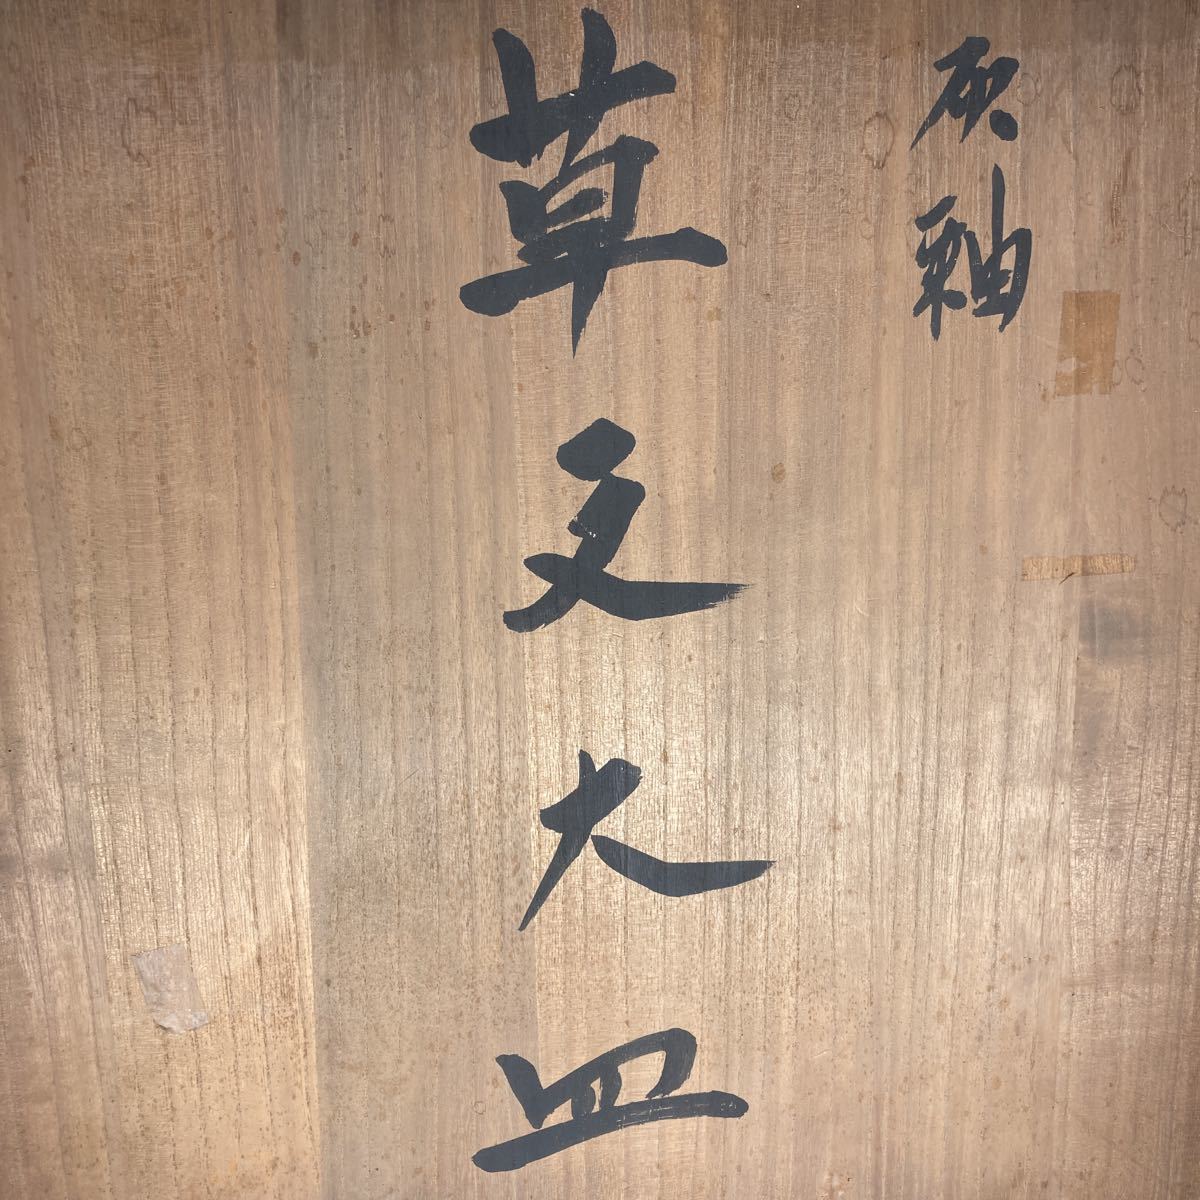 灰釉
草文大皿